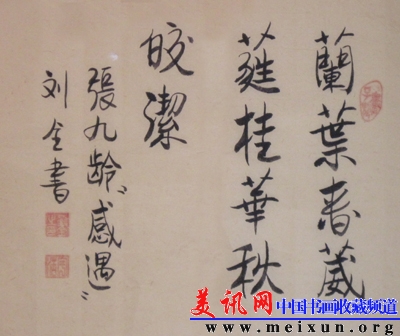 蘭葉春葳
蕤桂華秋
皎潔
張九龄“感遇”
刘全書
美讯网 中国书画收藏频道
www.meixun.org